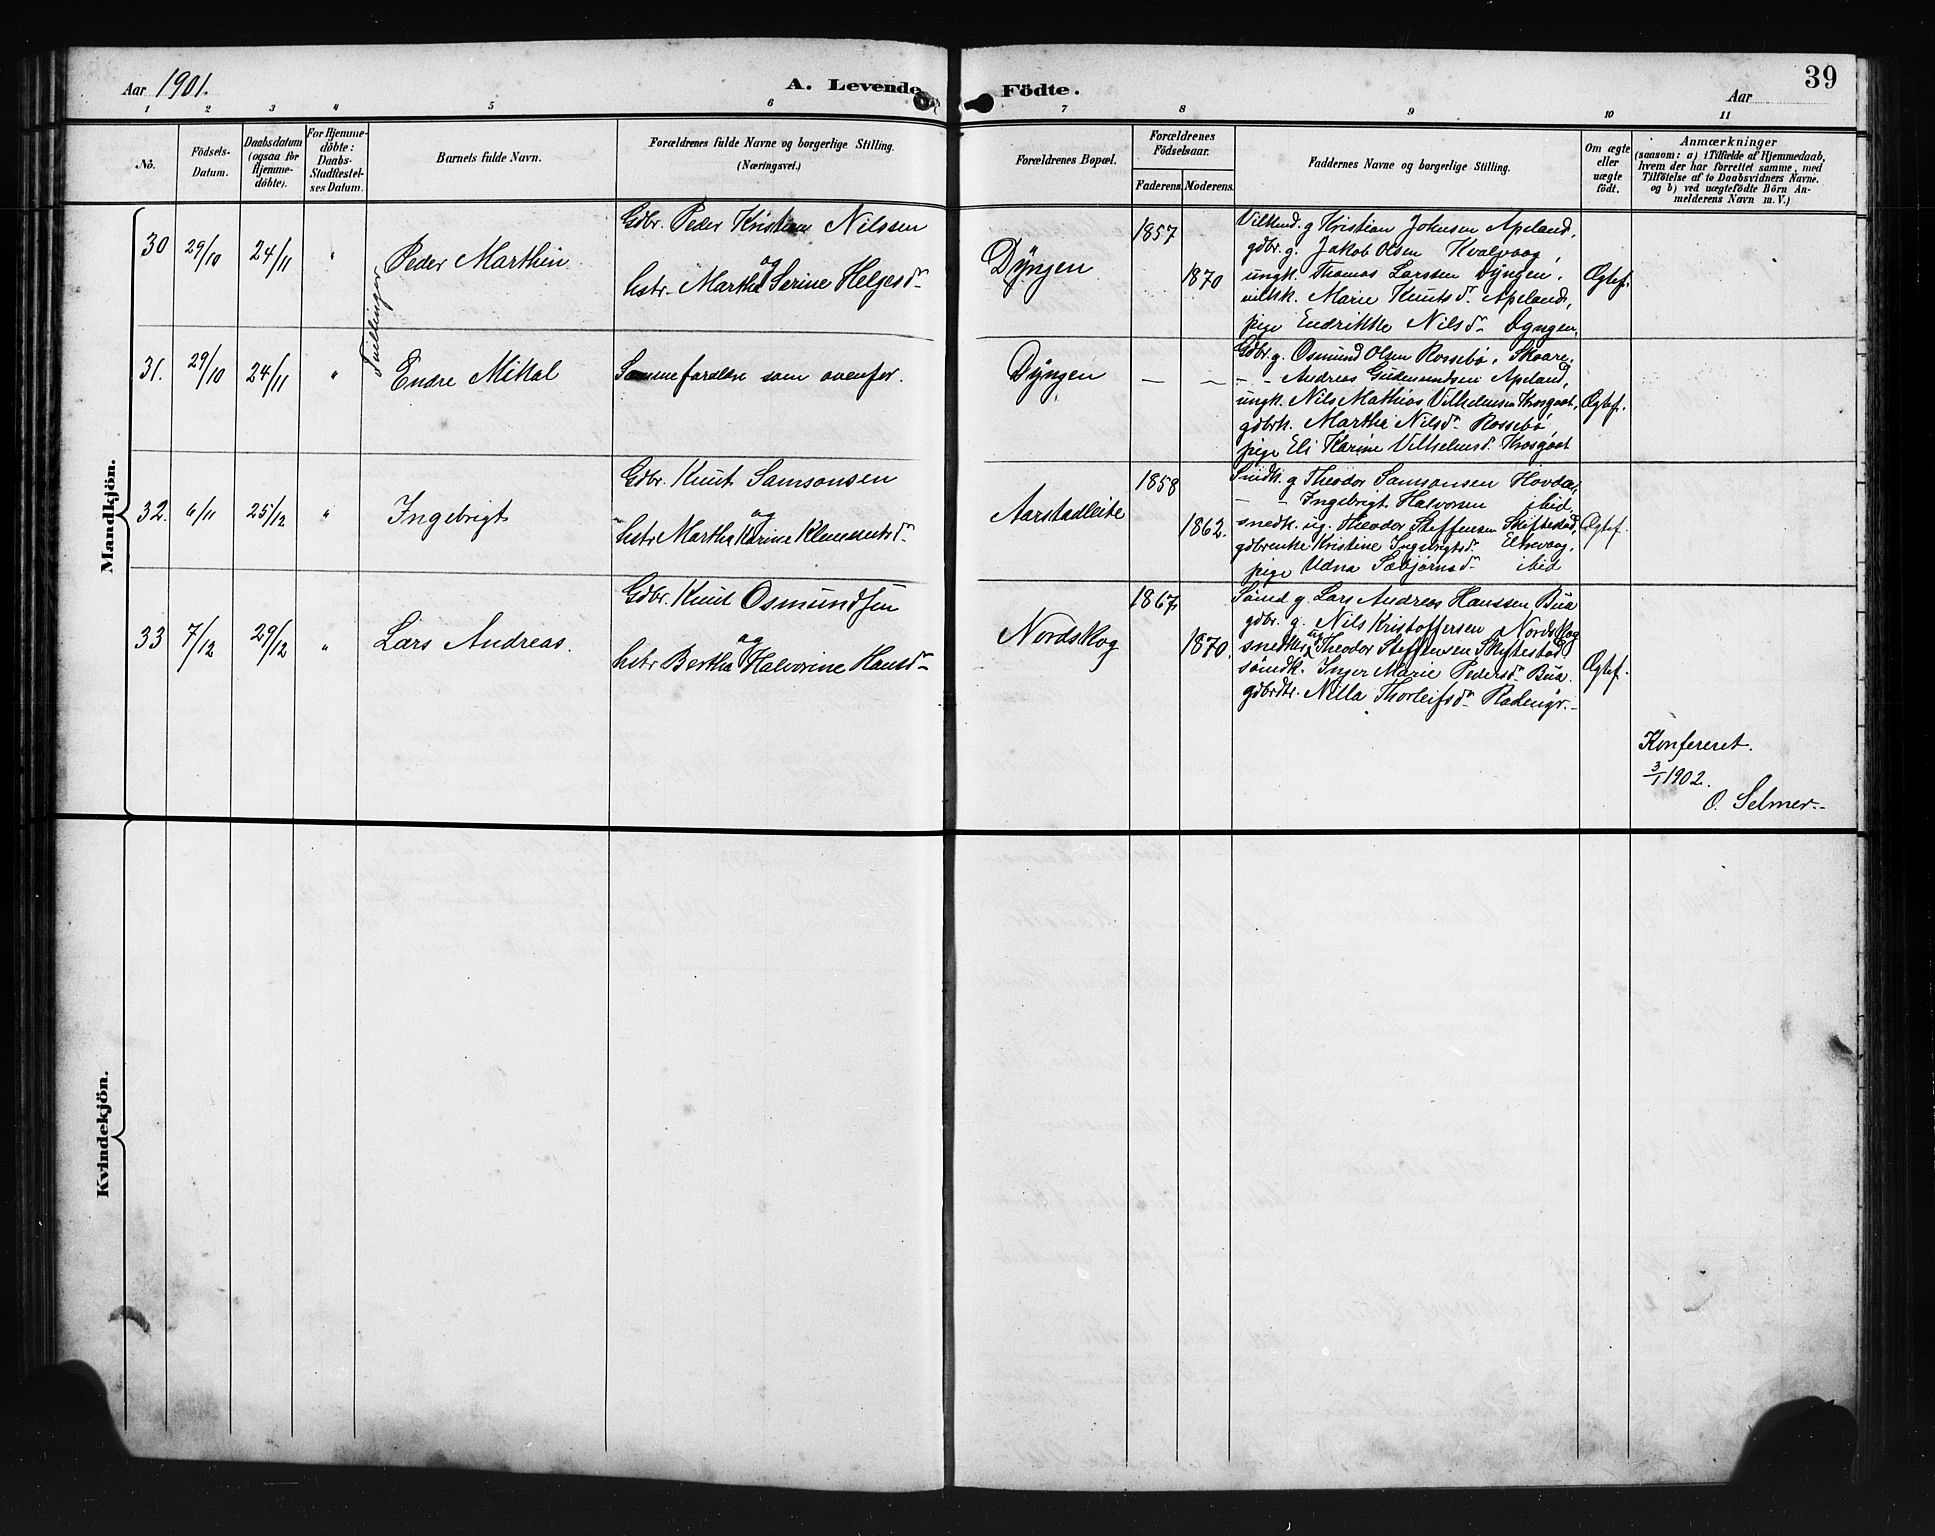 Aar 1901.
A. Levende Födte.
Aar
39
1 2 3 4 5 6 7 8 9 10 11
No.
Födsels-
Datum.
Daabsdatum
(ogsaa for
Hjemme-
döbte).
For Hjemme-
döbte:
Daabs-
Stadfæstel-
ses Datum.
Barnets fulde Navn.
Forældrenes fulde Navne og borgerlige Stilling.
(Næringsvei.)
Forældrenes Bopæl.
Forældrenes
Födselsaar.
Faderens.
Moderens.
Faddernes Navne og borgerlige Stilling.
Om ægte
eller
uægte
födt.
Anmærkninger
(saasom: a) i Tilfælde af Hjemmedaab,
hvem der har forrettet samme, med
Tilföielse af to Daabsvidners Navne,
og b) ved uægtefödte Börn An-
melderens Navn m. V.)
Mandkjön.
30
29/10
24/11
"
Peder Marthin
Tvillinger
Gdbr. Peder Kristian Nilssen
og
hstr. Martha Serine Helgesdr
Dyngen
1857
1870
Vilkmd. g. Kristian Johnsen Apeland,
gdbr. g. Jakob Olsen Kvalvaag,
ungk. Thomas Larssen Dyngen.
vilkk. Marie Knutsdr. Apeland,
pige Endrikke Nilsdr Dyngen,
Ægtef.
31.
29/10
24/11
"
Endre Mikal
Samme forældre som ovenfor.
Dyngen
— —
Gdbr. g. Osmund Olsen Rossebö, Skaare,
- - Andreas Gudmundsen Apeland,
ungk. Nils Mathias Vilhelmsen Krosgaat,
gdbrk. Martha Nilsdr Rossebö,
pige Eli Karine Vilhelmsd. Krosgaat
Ægtef.
32.
6/11
25/12
"
Ingebrigt
Gdbr. Knut Samsonsen
og
hstr Martha Karine Klemmetsdr
Aarstadleite
1858
1862.
Smedk. g Theodor Samsonsen Hovda,
- - Ingebrigt Halvorsen ibid,
snedk. ug. Theodor Steffensen
gdbrenke Kristine Ingebrigtsd.
pige Udna Sæbjörnsd ibid
Ægtef.
33
7/12
29/12
"
Lars Andreas.
Gdbr. Knut Osmundsen
og
hstr Bertha Halvorine Hansdr
Nordskog
1867
1870.
Sömd g. Lars Andreas Hanssen Bua
gdbr. g. Nils Kristoffersen Nordskog
snedkr ug Theodor Steffensen
sömdk. Inger Marie Pedersdr Bua.
gdbrdtr. Nilla Thorleifsdr
Ægtef.
Konfereret.
3/1 1902.
O. Selmer.
Kvindekjön.